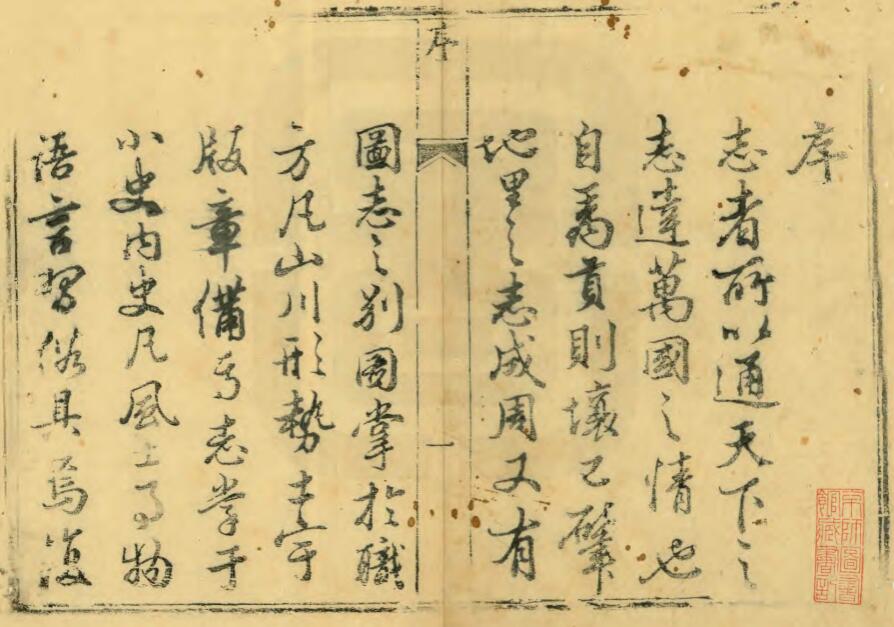 序
志者所以通天下之
志達萬國之情也
自禹貢則壤已肇
地里之志成周又有
序
一
圖志之别圖掌於職
方凡山川形勢土宇
版章備焉志掌于
小史内史凡風土事物
語言習俗具焉復